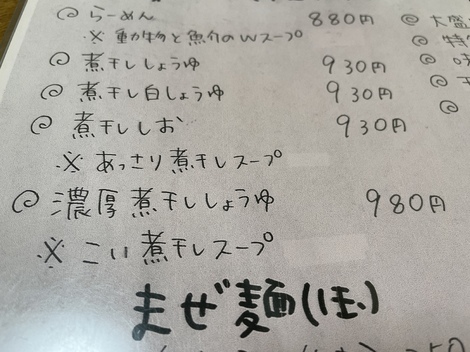 らーめん 880円
※ 動物と魚介のWスープ
煮干ししょうゆ 930円
煮干し白しょうゆ 930円
煮干ししお 930円
※ あっさり煮干しスープ
濃厚煮干ししょうゆ 980円
※ こい煮干しスープ
まぜ麺(ほ)
大盛